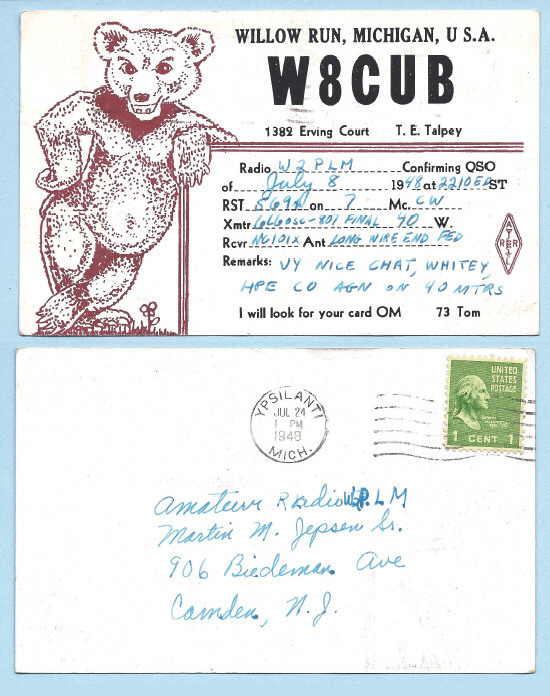 WILLOW RUN, MICHIGAN, U S.A.
W8CUB
1382 Erving Court T. E. Talpey
Radio W2PLM Confirming QSO
of July 8 1948 at 2210 ED ST
RST 569x on 7 Mc. CW
Xmtr 6L6 OSC-801 FINAL 40 W.
Rcvr NC101X Ant LONG WIRE END FED
Remarks: VY NICE CHAT, WHITEY,
HPE CU AGN ON 40 MTRS
I will look for your card OM 73 Tom
A
R R
L
YPSILANTI
JUL 24
1 PM
1948
MICH.
UNITED
STATES
POSTAGE
1 CENT 1
Amateur Radio W2PLM
Martin M. Jepsen Sr.
906 Biedeman Ave
Camden, N. J.